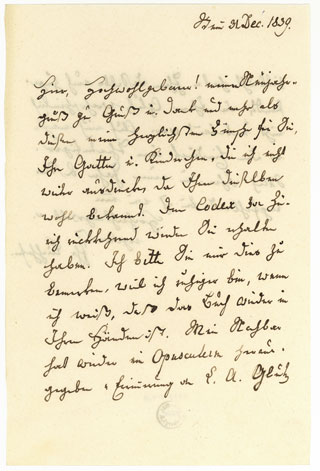 31 Dec. 1839.
Hier, Hochwohlgeborn! meinen Neujahr-
gruß zu Gruß u. Dank und mehr als
diesen mein herzlichsten Wunsch für Sie,
Ihre Gattin u. Kinderchen, die ich nicht
weiter ausdrücke, da Ihnen dieselben
wohl bekannt. Den Codex
ich rückkehrend werden Sie erhalten
haben. Ich bitte Sie mir dies zu
bemerken, weil ich ruhiger bin, wenn
ich weiß, daß das Buch wieder in
Ihren Händen ist. Mein Nachbar
hat wieder ein Opusculum heraus-
gegeben: Erinnerung an A. Glutz